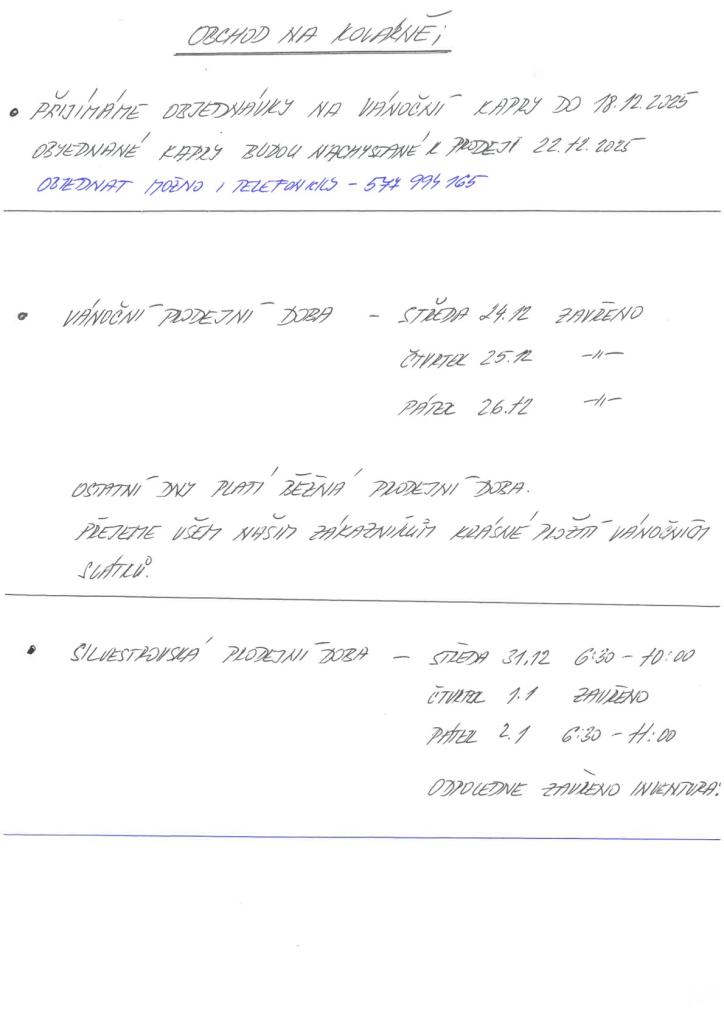 OBCHOD NA KOLÁRNĚ;
• PŘIJÍMÁME OBJEDNÁVKY NA VÁNOČNÍ KAPRY DO 18.12.2025
OBJEDNANÉ KAPRY BUDOU NACHYSTANÉ K PRODEJI 22.12.2025
OBJEDNAT MOŽNO I TELEFONICKY - 577 994 165
• VÁNOČNÍ PRODEJNÍ DOBA - STŘEDA 24.12 ZAVŘENO
ČTVRTEK 25.12 -//-
PÁTEK 26.12 -//-
OSTATNÍ DNY PLATÍ BĚŽNÁ PRODEJNÍ DOBA.
PŘEJEME VŠEM NAŠIM ZÁKAZNÍKŮM KRÁSNÉ PROŽITÍ VÁNOČNÍCH
SVÁTKŮ.
• SILVESTROVSKÁ PRODEJNÍ DOBA - STŘEDA 31.12 6:30 - 10:00
ČTVRTEK 1.1 ZAVŘENO
PÁTEK 2.1 6:30 - 11:00
ODPOLEDNE ZAVŘENO INVENTURA.